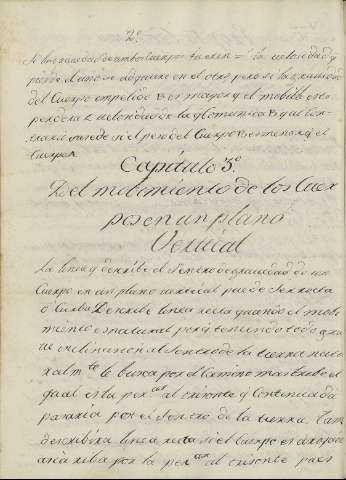 2.
Si las gravedad de ambos Cuerpos fueren = la velocidad q
pierde el uno se adquiere en el otro pero si la gravedad
del Cuerpo impelido B es mayor q el mobible
perdera velocidad
sucede si el peso del Cuerpo B es menor q el
Cuerpo A
Capitulo 3º
Del movimiento de los Cuer
pos en un plano
Vertical
La linea q describe el Sentro de gravedad de un
Cuerpo en un plano vertical puede ser recta
ô Curba Describe linea recta quando el movi
miento es natural porq teniendo todo grave
inclinacion al Sentro de la tierra natu
ralmte le busca por el Camino mas brebe el
qual es la per al orisonte q Continuada
pasaria por el Sentro de la tierra Tam
describira linea recta si el Cuerpo es arrojado
arriba por la per al orisonte pues